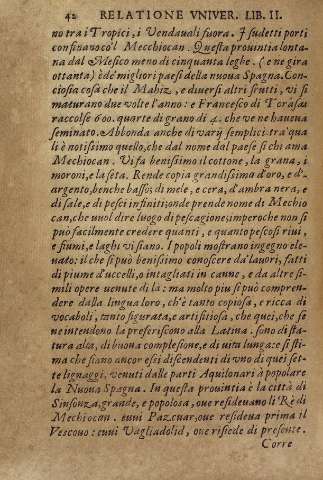 42 RELATIONE VNIVER. LIB. II.
no tra i Tropici, i Uendauali suora. I sudetti porti
confinauocol Mecchiocan. Questa prouintia lonta-
na dal Mesico meno di cinquanta leghe. (e ne gira
ottanta) è de' migliori paesi della nuoua Spagna. Con-
ciosia cosa che il Mahiz, e diuersi altri frutti, vi si
maturano due volte l'anno: e Francesco di Torasas
raccolse 600. quarte di grano di 4. che ve ne haueua
seminato. Abbonda anche di vary semplici tra' qua
li è notissimo quello, che dal nome dal paese si chiama
Mechiocan. Vi fa benissimo il cottone, la grana, i
moroni, e la seta. Rende copia grandissima d'oro, e d'
argento, benche basso; di mele, e cera, d'ambra nera, e
di sale, e di pesci infiniti; onde prende nome di Mechio
can, che vuol dire luogo di pescagione; imperoche non si
può facilmente credere quanti, e quanto pescosi riui,
e fiumi, e laghi vi siano. I popoli mostrano ingegno ele-
uato: il che si può benissimo conoscere da' lauori, fatti
di piume d'uccelli, o intagliati in canne, e da altre si-
mili opere uenute di là: ma molto piu si può compren-
dere dalla lingua loro, ch'è tanto copiosa, e ricca di
vocaboli, tanto figurata, e artifitiosa, che quei, che se
ne intendono la preferiscono alla Latina. sono di sta-
tura alta, di buona complesione, e di vita lunga: e si sti-
ma che siano ancor essi discendenti di vno di quei set-
te lignaggi, venuti dalle parti Aquilonari à popolare
la Nuoua Spagna. In questa prouintia è la città di
Sinsonza, grande, e popolosa, oue residevano li Rè di
Mechiocan. euui Pazcuar, oue resideua prima il
Vescouo: euui Uagliadolid, oue risiede di presente.
Corre